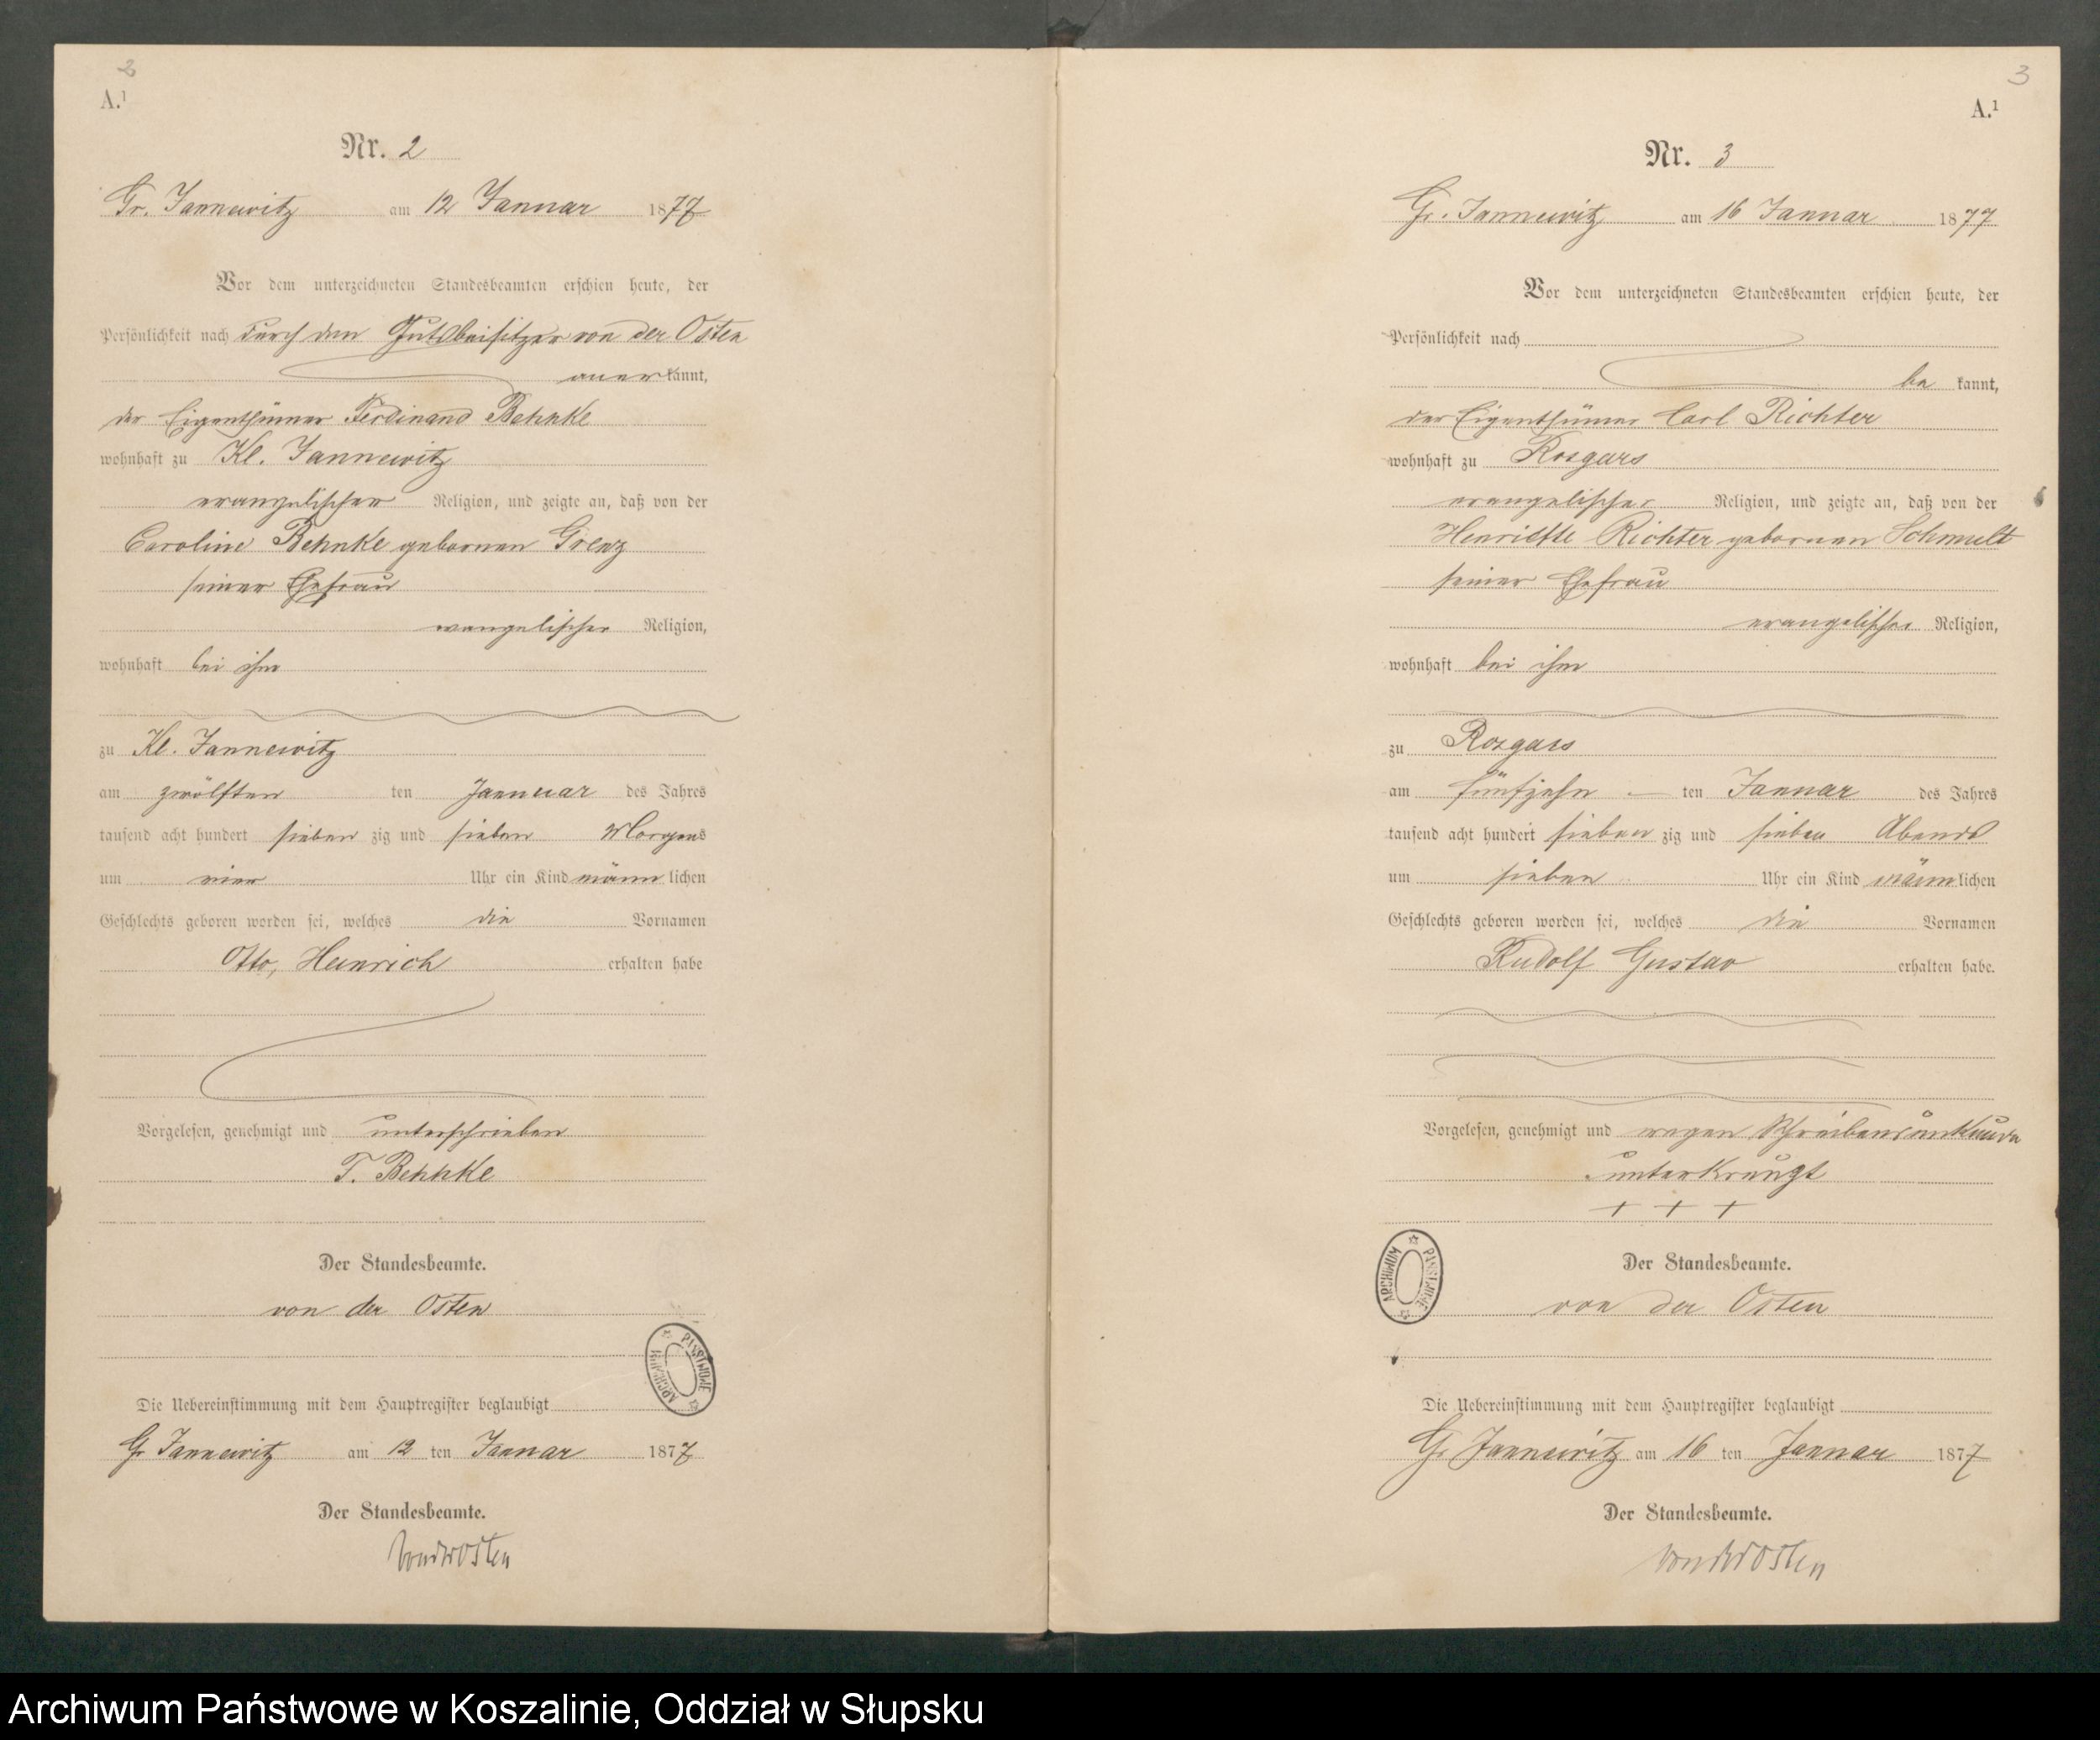 2
A.¹
Nr. 2
Gr. Jannewitz am 12 Januar 1877
Vor dem unterzeichneten Standesbeamten erschien heute, der
Persönlichkeit nach durch den Gutsbesitzer von der Osten
anerkannt,
der Eigenthümer Ferdinand Behnke
wohnhaft zu Kl. Jannewitz
evangelischer Religion, und zeigte an, daß von der
Caroline Behnke geborenen Grenz
seiner Ehefrau
evangelischer Religion,
wohnhaft bei ihm
zu Kl. Jannewitz
am zwölften ten Januar des Jahres
tausend acht hundert sieben zig und sieben Morgens
um vier Uhr ein Kind männlichen
Geschlechts geboren worden sei, welches die Vornamen
Otto, Heinrich erhalten habe
Vorgelesen, genehmigt und unterschrieben
F. Behnke
Der Standesbeamte.
von der Osten
ARCHIWUM PAŃSTWOWE
Die Uebereinstimmung mit dem Hauptregister beglaubigt
Gr Jannewitz am 12 ten Januar 1877
Der Standesbeamte.
von der Osten
3
A.¹
Nr. 3
Gr. Jannewitz am 16 Januar 1877
Vor dem unterzeichneten Standesbeamten erschien heute, der
Persönlichkeit nach
be kannt,
der Eigenthümer Carl Richter
wohnhaft zu Rozgars
evangelischer Religion, und zeigte an, daß von der
Henriette Richter geborenen Schmult
seiner Ehefrau
evangelischer Religion,
wohnhaft bei ihm
zu Rozgars
am fünfzehn ten Januar des Jahres
tausend acht hundert sieben zig und sieben Abends
um sieben Uhr ein Kind männlichen
Geschlechts geboren worden sei, welches die Vornamen
Rudolf Gustav erhalten habe.
Vorgelesen, genehmigt und wegen Schreibensunkunde
unterkreuzt
+ + +
Der Standesbeamte.
ARCHIWUM PAŃSTWOWE
von der Osten
Die Uebereinstimmung mit dem Hauptregister beglaubigt
Gr Jannewitz am 16 ten Januar 1877
Der Standesbeamte.
von der Osten
Archiwum Państwowe w Koszalinie, Oddział w Słupsku